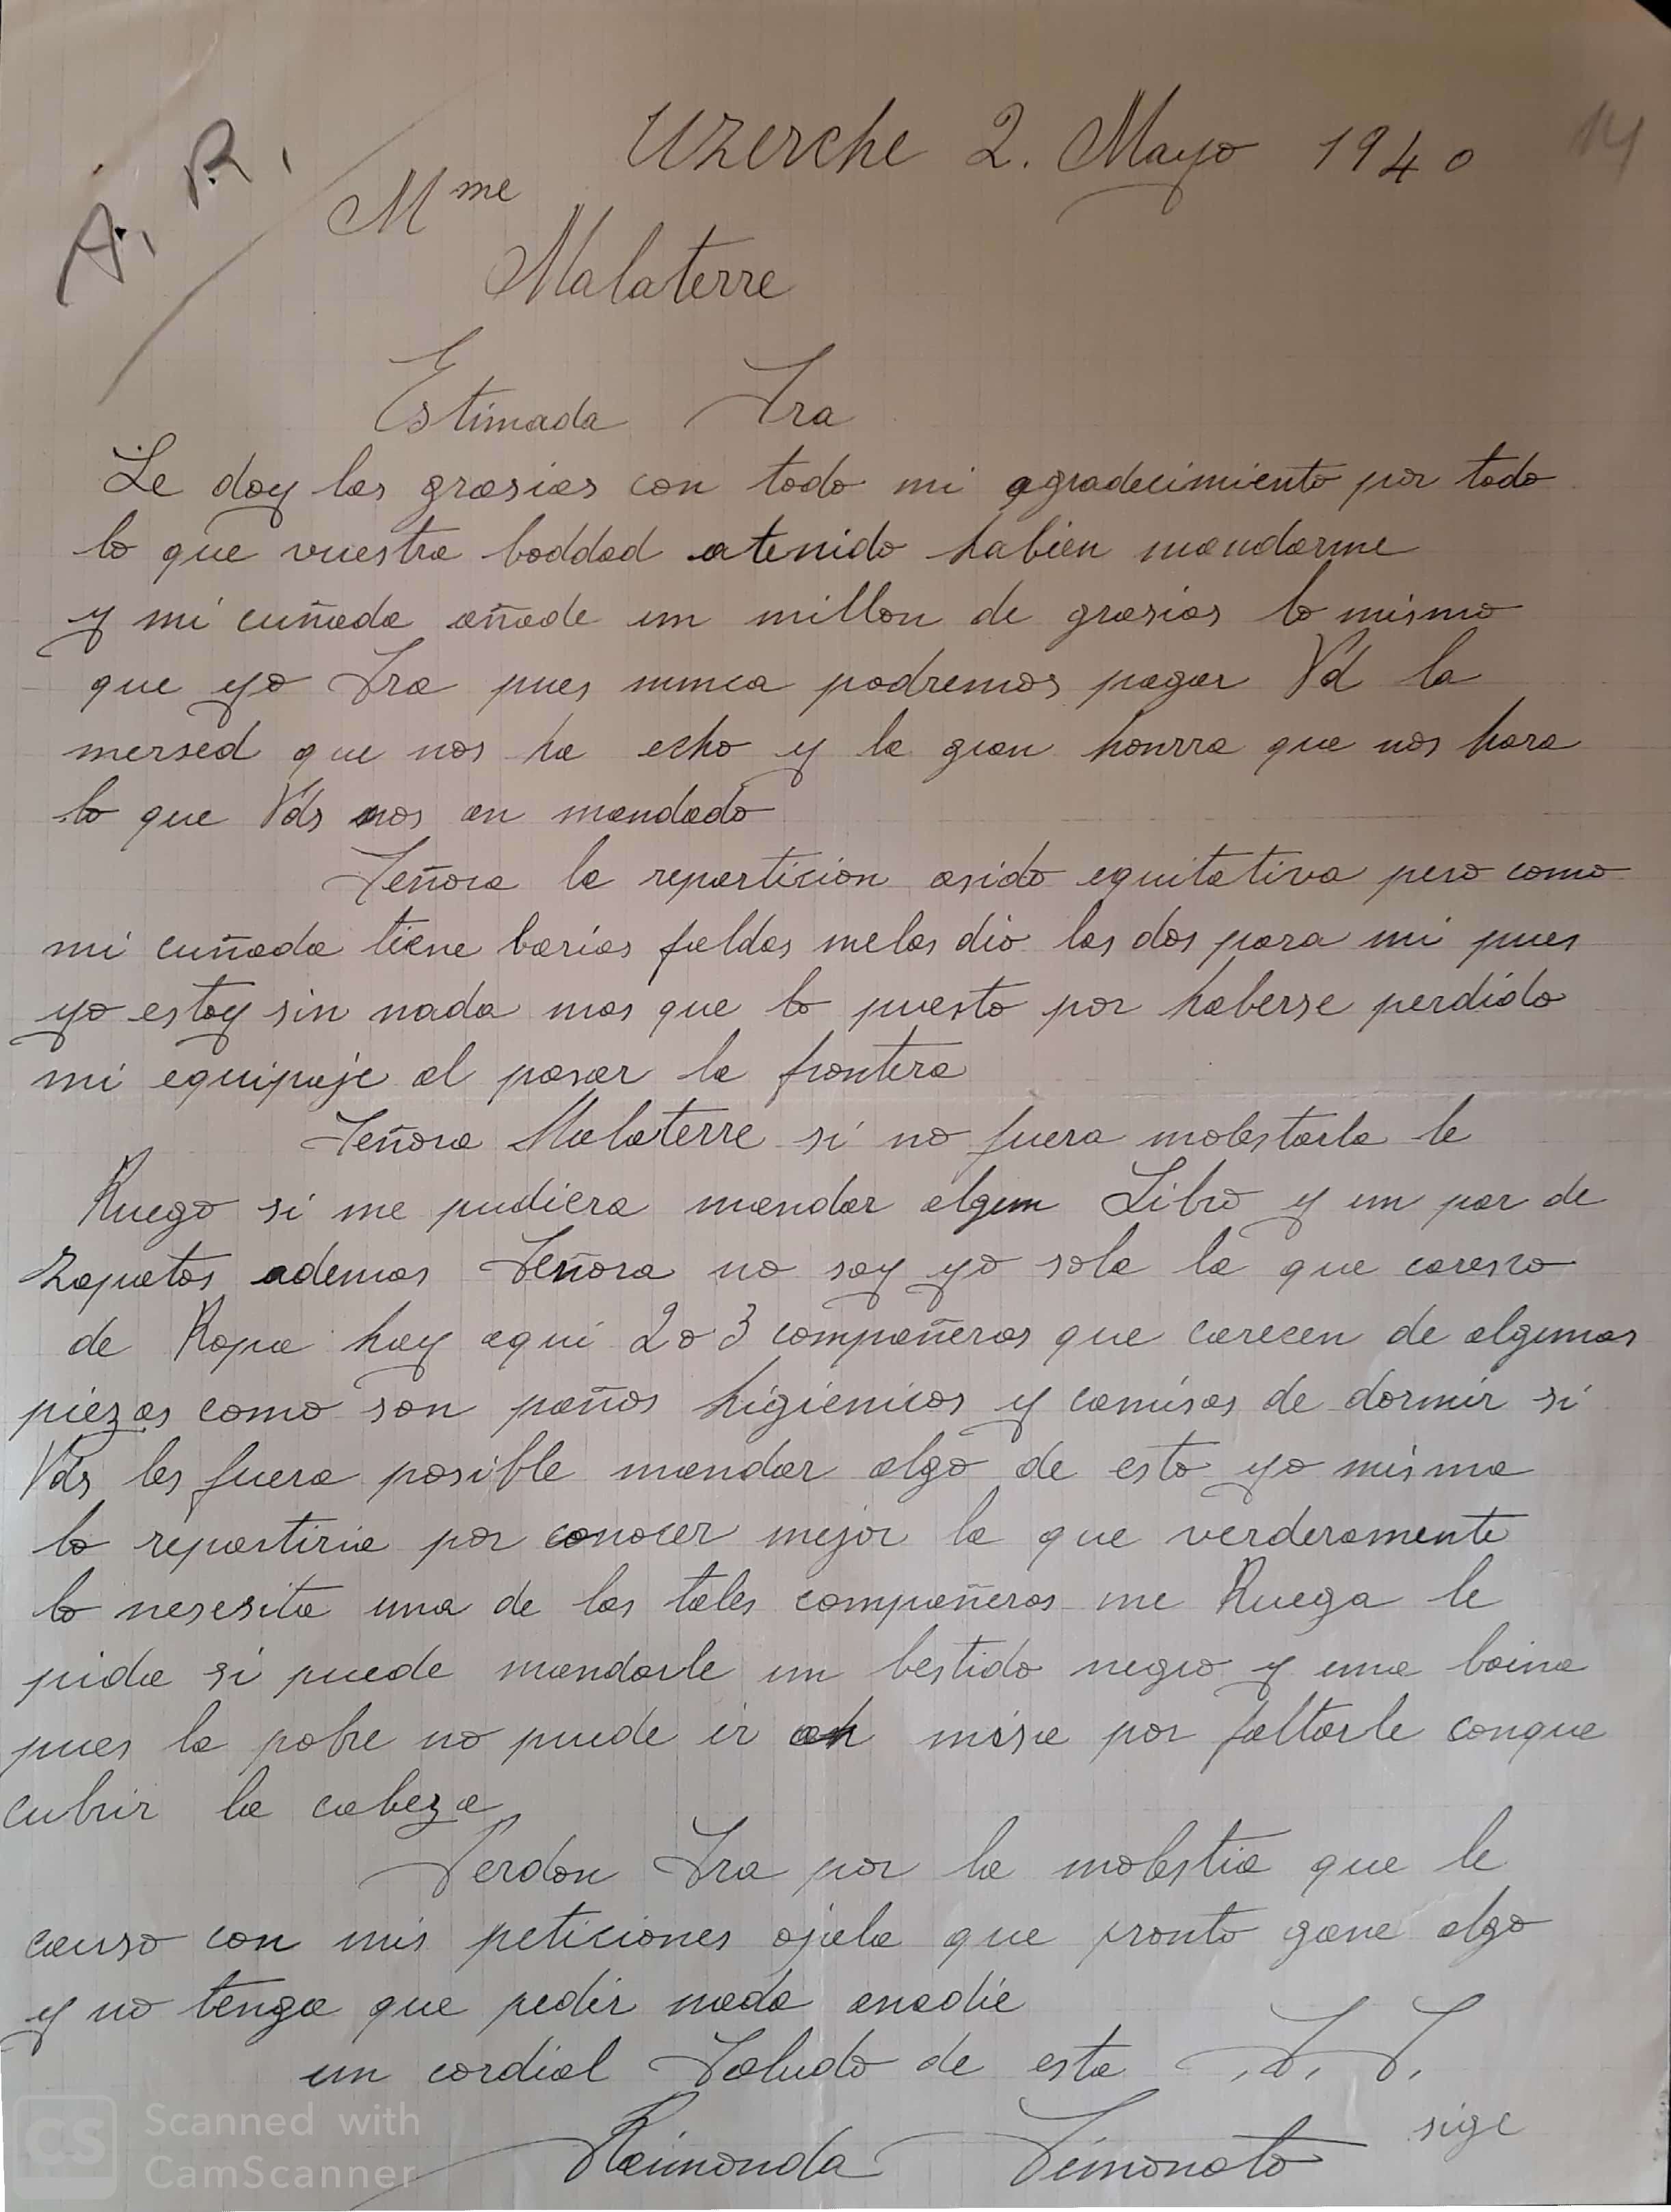 Uzerche 2. Mayo 1940
14
A. R.
Mme
Malaterre
Estimada Sra
Le doy las grasias con todo mi agradecimiento por todo
lo que vuestra boddad atenido habien mandarme
y mi cuñada añade un millon de grasias lo mismo
que yo Sra pues nunca podremos pagar Vd la
mersed que nos ha echo y la gran honrra que nos hara
lo que Vds nos an mandado
Señora la reparticion asido equitativa pero como
mi cuñada tiene barias faldas melas dio las dos para mi pues
yo estoy sin nada mas que lo puesto por haberse perdido
mi equipaje al pasar la frontera
Señora Malaterre si no fuera molestarla le
Ruego si me pudiera mandar algun Libro y un par de
zapatos ademas Señora no soy yo sola la que caresco
de Ropa hay aqui 2 o 3 compañeras que carecen de algunas
piezas como son paños higienicos y camisas de dormir si
Vds les fuera posible mandar algo de esto yo misma
lo repartiria por conocer mejor la que verderamente
lo nesesita una de las tales compañeras me Ruega le
pida si puede mandarle un bestido negro y una boina
pues la pobre no puede ir misa por faltarle conque
cubrir la cabeza
Perdon Sra por la molestia que le
causo con mis peticiones ojala que pronto gane algo
y no tenga que pedir nada anadie
un cordial Saludo de esta S. S.
Raimonda Simonato sige
CS Scanned with
CamScanner